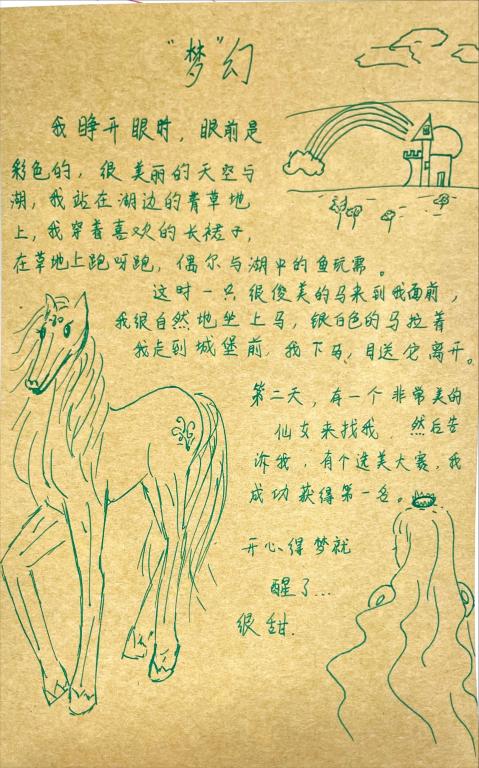 “梦”幻
我睁开眼时，眼前是
彩色的，很美丽的天空与
湖，我站在湖边的青草地
上，我穿着喜欢的长裙子，
在草地上跑呀跑，偶尔与湖中的鱼玩需。
这时一只很俊美的马来到我面前，
我很自然地坐上马，银白色的马拉着
我走到城堡前，我下马，目送它离开。
第二天，有一个非常美的
仙女来找我，然后告
诉我，有个选美大赛，我
成功获得第一名。
开心得梦就
醒了...
很甜.